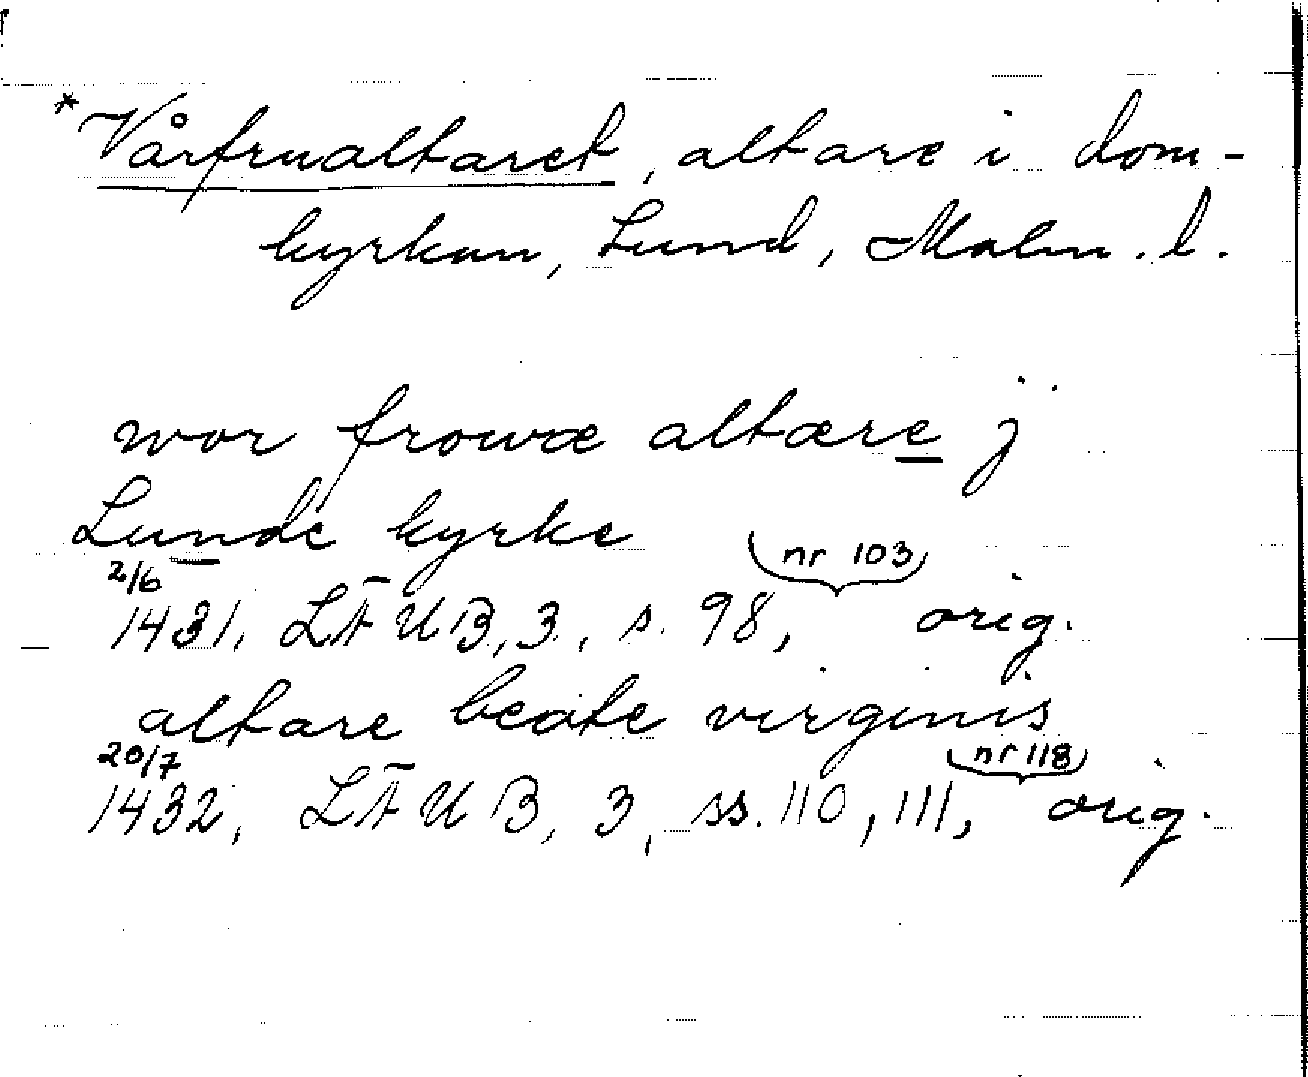 *Vårfrualtaret, altare i dom-
kyrkan, Lund, Malm. l.
wor frowæ altære j
Lunde kyrke
nr 103
2/6
1431, LÄUB, 3, s. 98, orig.
altare beate virginis
20/7 nr 118
1432, LÄUB, 3, ss. 110, 111, orig.